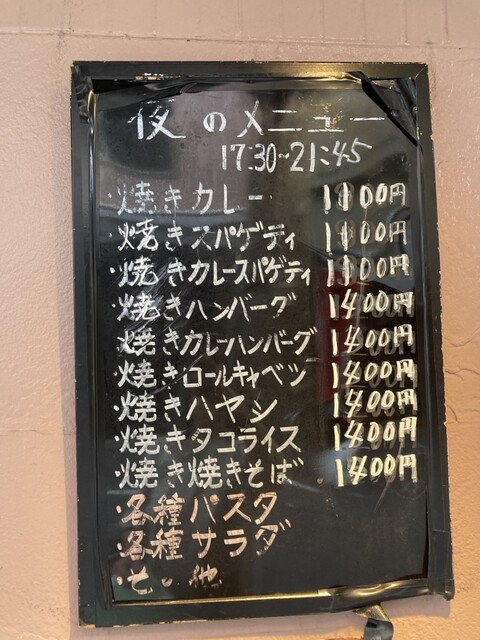 夜のメニュー
17:30~21:45
・焼きカレー 1100円
・焼きスパゲティ 1100円
・焼きカレースパゲティ
・焼きハンバーグ 1400円
・焼きカレーハンバーグ 1400円
・焼きロールキャベツ 1400円
・焼きハヤシ 1400円
・焼きタコライス 1400円
・焼き焼きそば 1400円
・各種パスタ
・各種サラダ
・その他